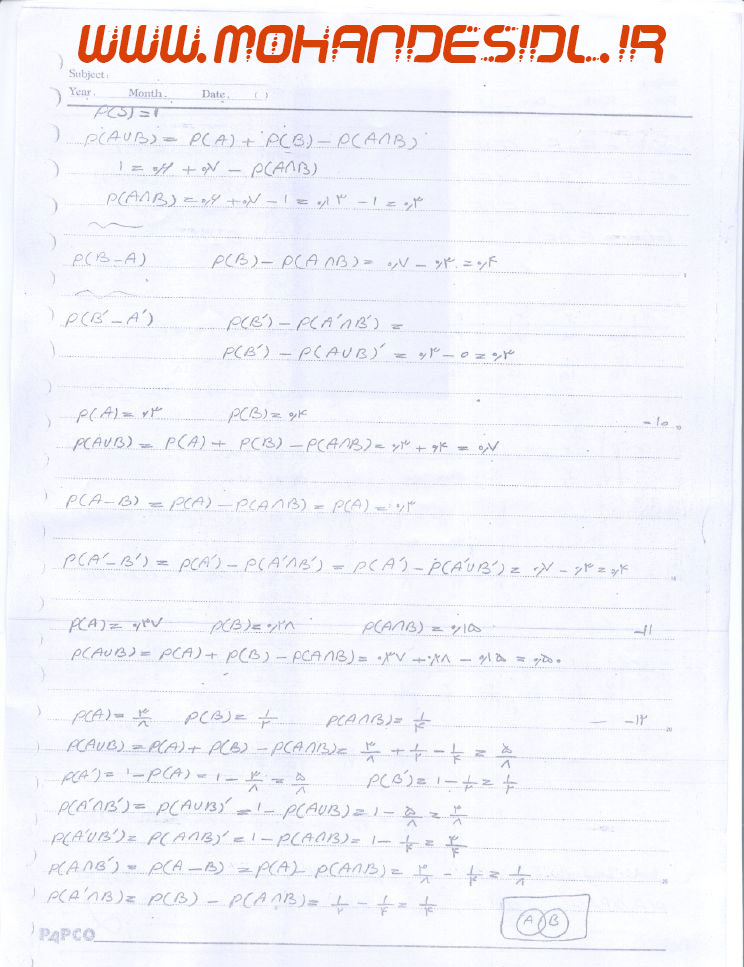 WWW.MOHANDESIDL.IR
Subject:
Year. Month. Date. ( )
P(S)=۱
P(A∪B) = P(A) + P(B) − P(A∩B)
۱ = ۰٫۶ + ۰٫۷ − P(A∩B)
P(A∩B) = ۰٫۶ + ۰٫۷ − ۱ = ۰٫۱۳ − ۱ = ۰٫۳
P(B−A) P(B) − P(A∩B) = ۰٫۷ − ۰٫۳ = ۰٫۴
P(B′−A′) P(B′) − P(A′∩B′) =
P(B′) − P(A∪B)′ = ۰٫۳ − ۰ = ۰٫۳
P(A) = ۰٫۳ P(B) = ۰٫۴ −۱۰
P(A∪B) = P(A) + P(B) − P(A∩B) = ۰٫۳ + ۰٫۴ = ۰٫۷
P(A−B) = P(A) − P(A∩B) = P(A) = ۰٫۳
P(A′−B′) = P(A′) − P(A′∩B′) = P(A′) − P(A′∪B′) = ۰٫۷ − ۰٫۳ = ۰٫۴
P(A) = ۰٫۳۷ P(B) = ۰٫۲۸ P(A∩B) = ۰٫۱۵ −۱۱
P(A∪B) = P(A) + P(B) − P(A∩B) = ۰٫۳۷ + ۰٫۲۸ − ۰٫۱۵ = ۰٫۵۰
P(A) = ۳/۸ P(B) = ۱/۲ P(A∩B) = ۱/۴ −۱۲
P(A∪B) = P(A) + P(B) − P(A∩B) = ۳/۸ + ۱/۲ − ۱/۴ = ۵/۸
P(A′) = ۱ − P(A) = ۱ − ۳/۸ = ۵/۸ P(B′) = ۱ − ۱/۲ = ۱/۲
P(A′∩B′) = P(A∪B)′ = ۱ − P(A∪B) = ۱ − ۵/۸ = ۳/۸
P(A′∪B′) = P(A∩B)′ = ۱ − P(A∩B) = ۱ − ۱/۴ = ۳/۴
P(A∩B′) = P(A−B) = P(A) − P(A∩B) = ۳/۸ − ۱/۴ = ۱/۸
P(A′∩B) = P(B) − P(A∩B) = ۱/۲ − ۱/۴ = ۱/۴
A B
PAPCO